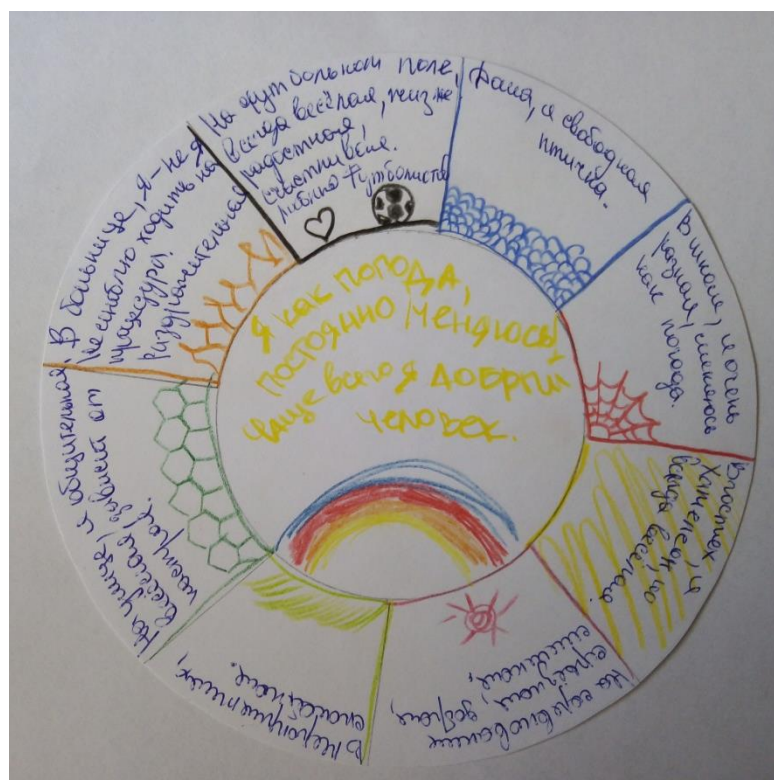 Я как погода,
постоянно меняюсь,
чаще всего я добрый
человек.
На футбольном поле,
всегда весёлая, жизне
радостная,
счастливая.
люблю футболистов
Дома, я свободная
птичка.
В школе, я очень
разная, меняюсь
как погода.
В гостях, я
но
всегда весёлая.
На соревнование
серьёзная, добрая,
В мероприятиях,
На улице, я общительная,
весёлая, зависит от
настроя.
В больнице, я - не я
не люблю ходить на
процедуры.
раздражительная